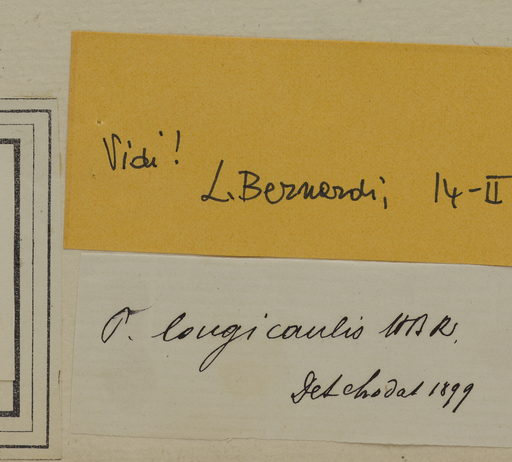 Vidi!
L. Bernardi, 14-II
P. longicaulis HBK.
Det Chodat 1899